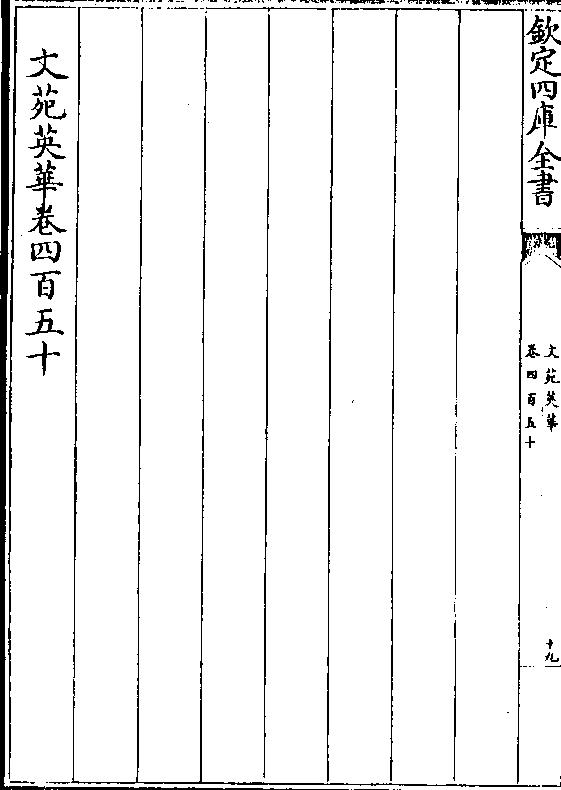 欽定四庫全書
文苑英華
卷四百五十
十九
文苑英華卷四百五十